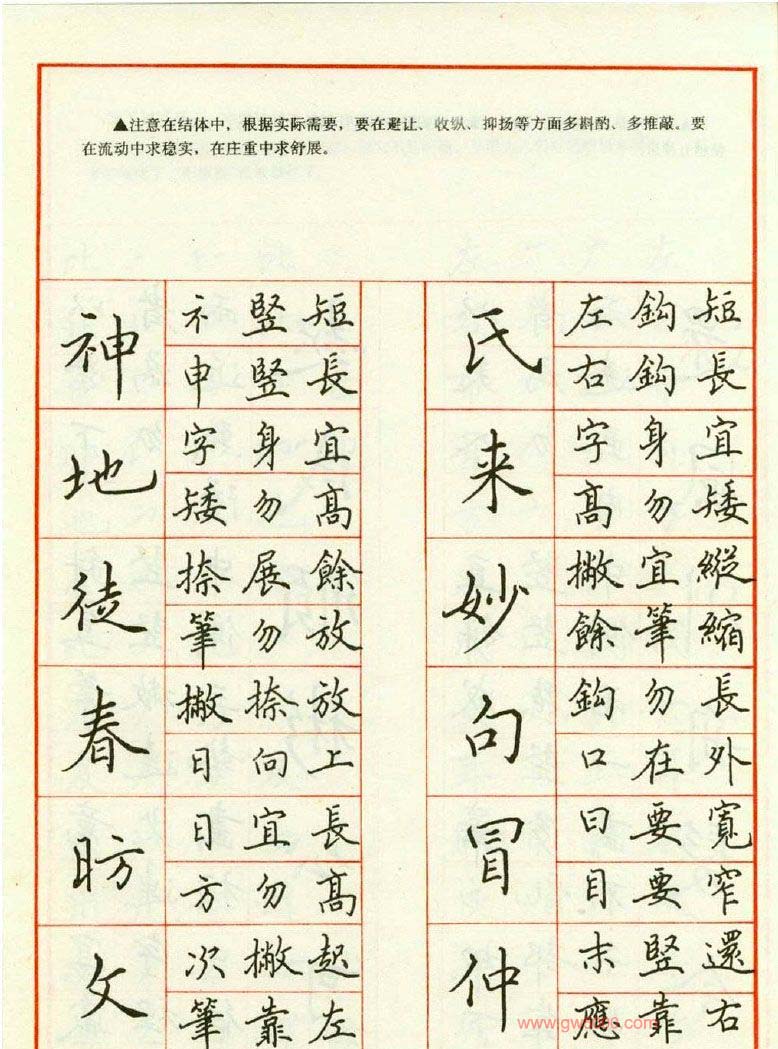 ▲注意在结体中，根据实际需要，要在避让、收纵、抑扬等方面多斟酌、多推敲。要
在流动中求稳实，在庄重中求舒展。
神
礻竪短
申竪長
地
字身宜
矮勿高
徒
捺展餘
筆勿放
春
撇捺放
日向上
昉
日宜長
方勿高
文
次撇起
筆靠左
氏
左鈎短
右鈎長
来
字身宜
高勿矮
妙
撇宜縱
餘筆縮
句
鈎勿長
口在外
冒
曰要寬
目要窄
仲
末竪還
應靠右